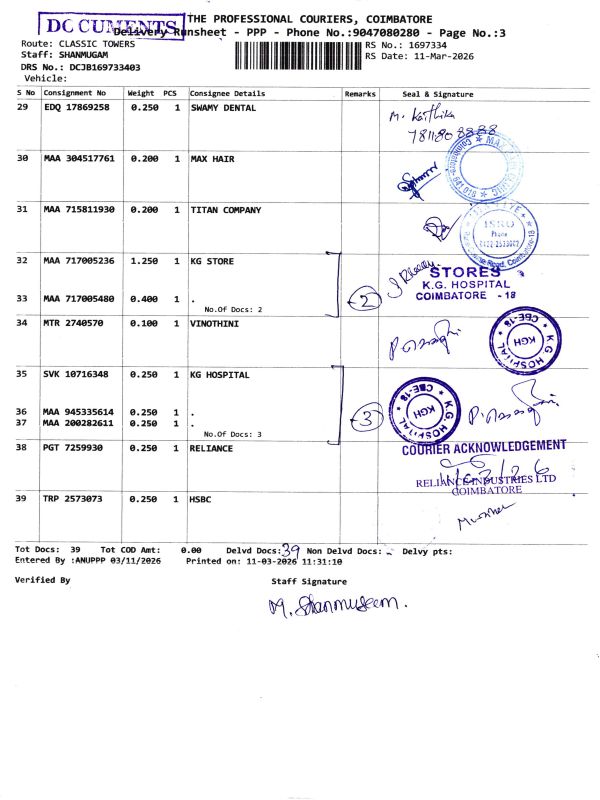 DOCUMENTS
THE PROFESSIONAL COURIERS, COIMBATORE
Delivery Runsheet - PPP - Phone No.:9047080280 - Page No.:3
Route: CLASSIC TOWERS
RS No.: 1697334
Staff: SHANMUGAM
RS Date: 11-Mar-2026
DRS No.: DCJB169733403
Vehicle:
S No Consignment No Weight PCS Consignee Details Remarks Seal & Signature
29 EDQ 17869258 0.250 1 SWAMY DENTAL
M. Karthika
7811808888
30 MAA 304517761 0.200 1 MAX HAIR
31 MAA 715811930 0.200 1 TITAN COMPANY
32 MAA 717005236 1.250 1 KG STORE
STORES
K.G. HOSPITAL
COIMBATORE - 18
33 MAA 717005480 0.400 1 .
2
No.Of Docs: 2
34 MTR 2740570 0.100 1 VINOTHINI
K.G. HOSPITAL
CBE-18
KGH
35 SVK 10716348 0.250 1 KG HOSPITAL
K.G. HOSPITAL
CBE-18
KGH
36 MAA 945335614 0.250 1 .
37 MAA 200282611 0.250 1 .
3
No.Of Docs: 3
38 PGT 7259930 0.250 1 RELIANCE
COURIER ACKNOWLEDGEMENT
RELIANCE INDUSTRIES LTD
COIMBATORE
39 TRP 2573073 0.250 1 HSBC
Tot Docs: 39 Tot COD Amt: 0.00 Delvd Docs: 39 Non Delvd Docs: - Delvy pts:
Entered By :ANUPPP 03/11/2026 Printed on: 11-03-2026 11:31:10
Verified By
Staff Signature
M. Shanmugam.